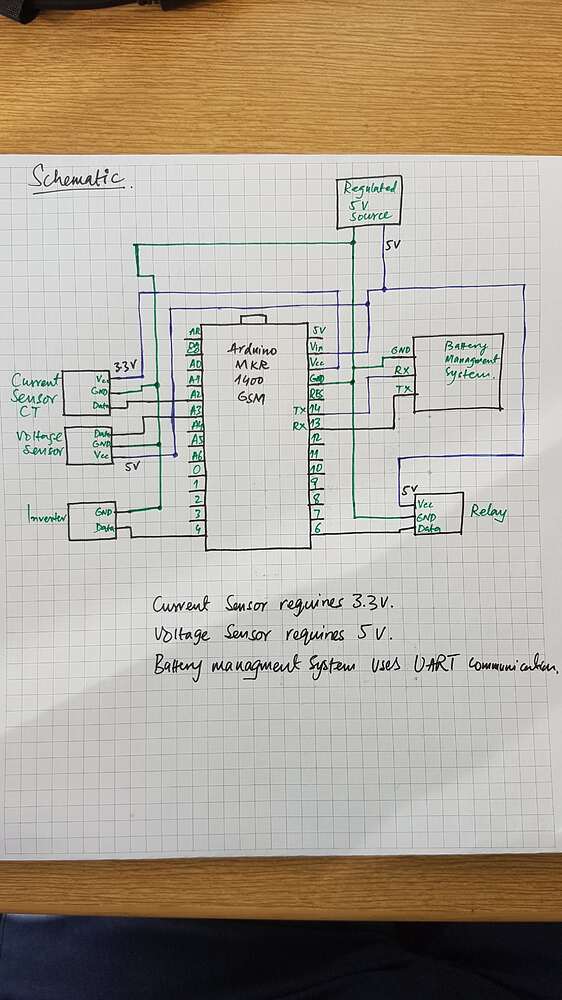 Schematic.
Regulated
5V
Source
5V
Arduino
MKR
1400
GSM
AR
A0
A1
A2
A3
A4
A5
A6
0
1
2
3
4
5V
Vin
Vcc
GND
RES
TX 14
RX 13
12
11
10
9
8
7
6
Current
Sensor
CT
Vcc
GND
Data
3.3V
Voltage
Sensor
Data
GND
Vcc
5V
Inverter
GND
Data
GND
RX
TX
Battery
Managment
System.
5V
Vcc
GND
Data
Relay
Current Sensor requires 3.3V.
Voltage Sensor requires 5V.
Battery managment System uses UART communication.